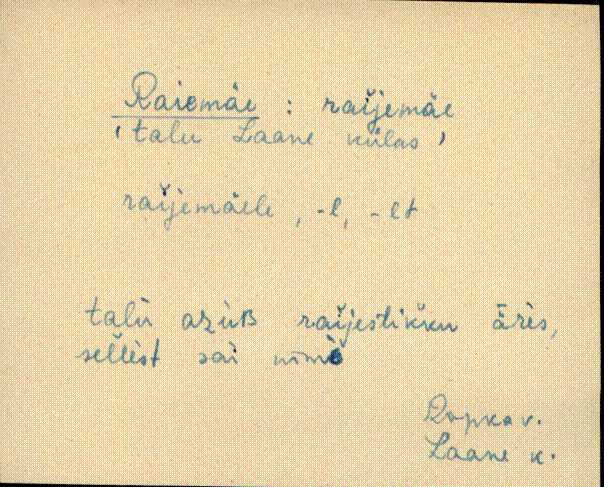 Raiemäe : raĭjemäe
'talu Laane külas'
raĭjemäele, -l, -lt
talù azùB raĭjestikku äres,
sellest sai nimè
Ropka v.
Laane k.